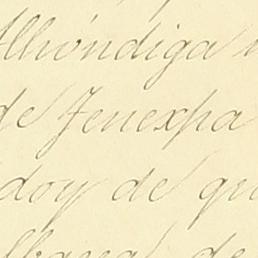 Alhóndiga
de Jenexpa
doy de qu